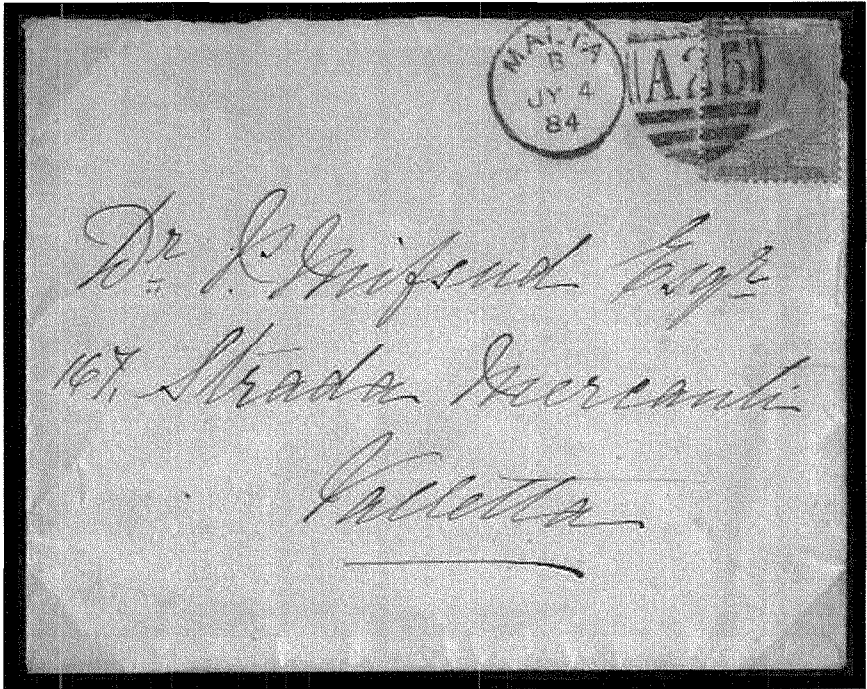 MALTA
B
JY 4
84
A25
Dr Mifsud Esqr
167, Strada Mercanti
Valletta